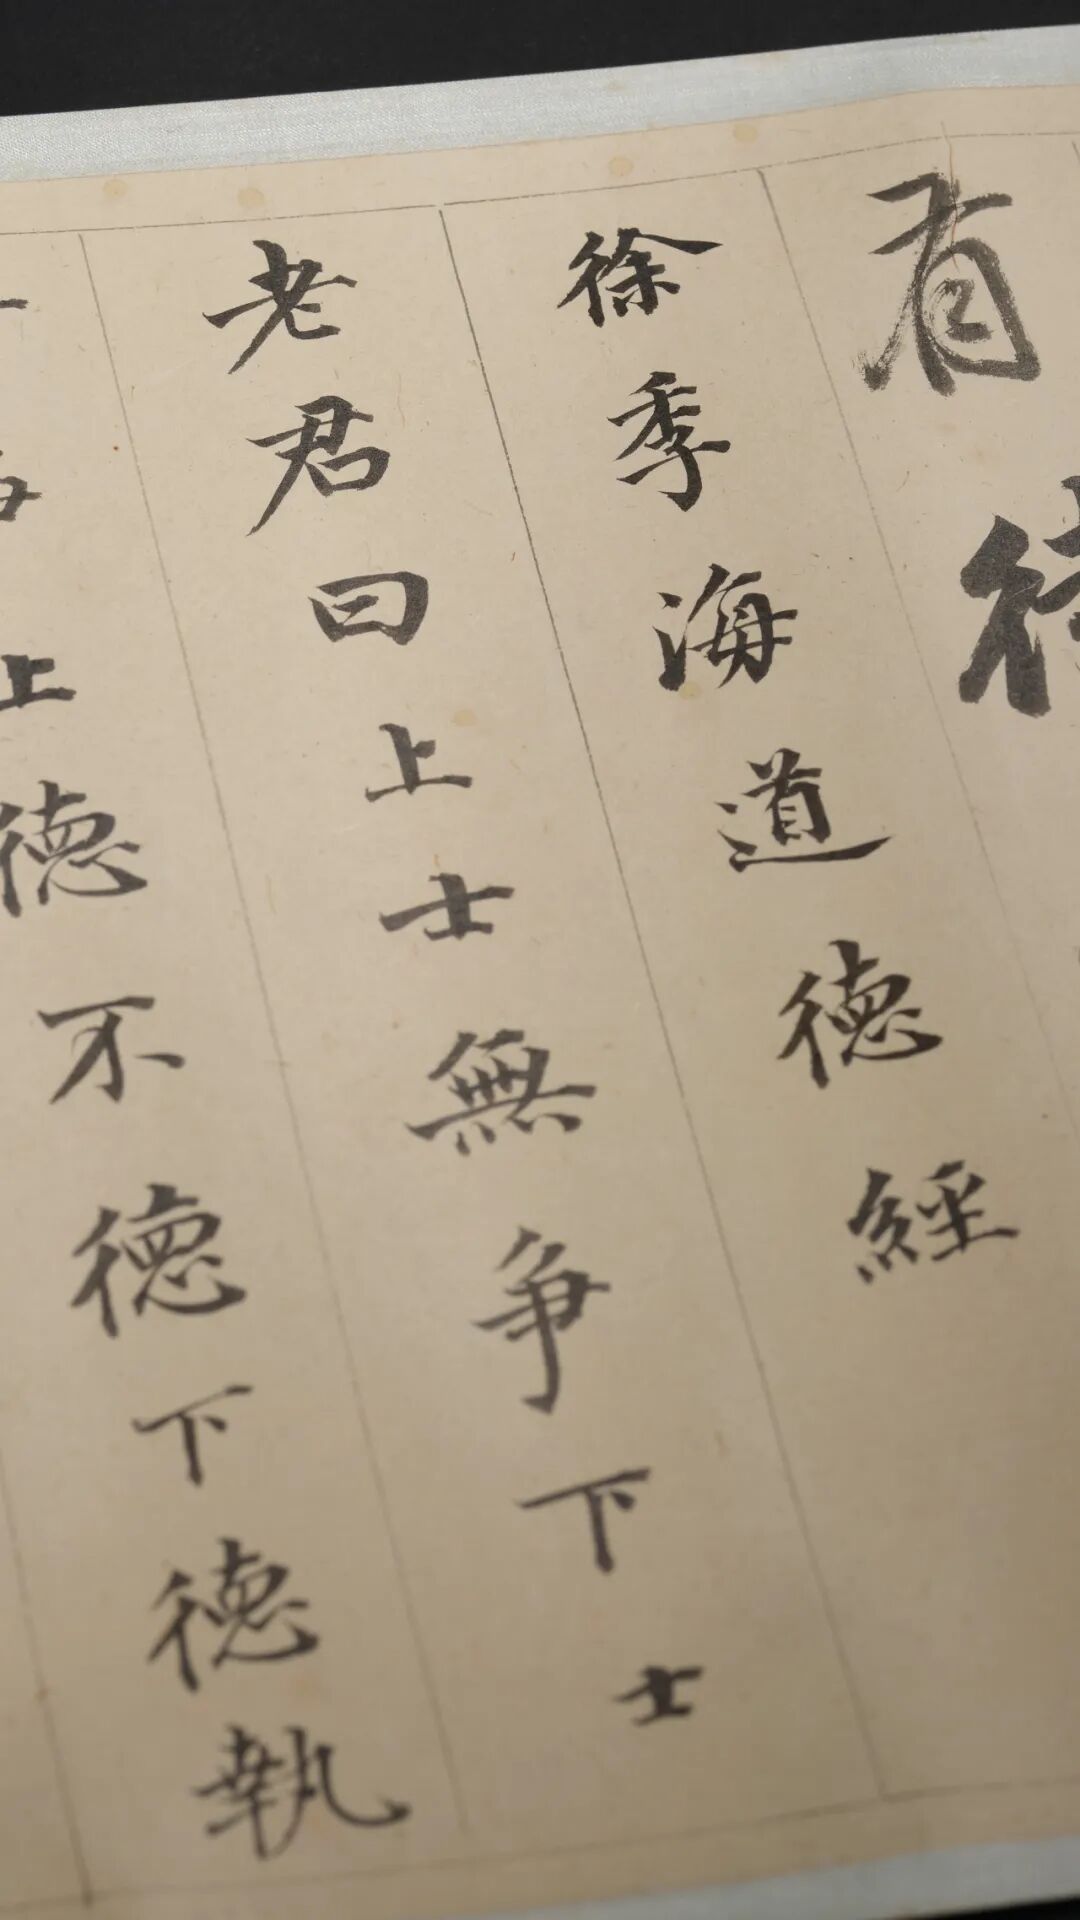 有
徐季海道德經
老君曰上士無爭下士
上德不德下德執